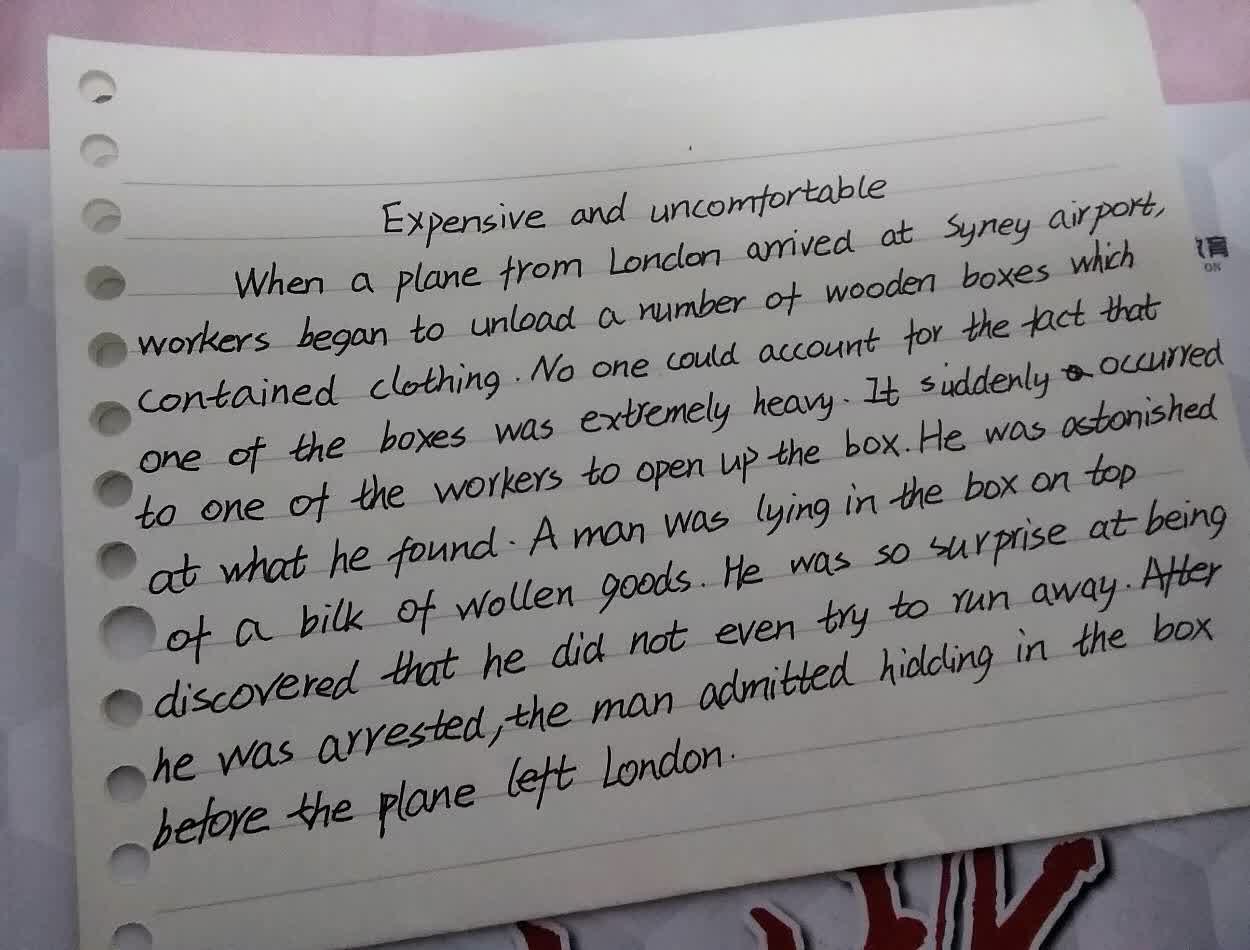 Expensive and uncomfortable
When a plane from London arrived at Syney airport,
workers began to unload a number of wooden boxes which
contained clothing. No one could account for the fact that
one of the boxes was extremely heavy. It suddenly occurred
to one of the workers to open up the box. He was astonished
at what he found. A man was lying in the box on top
of a bilk of wollen goods. He was so surprise at being
discovered that he did not even try to run away. After
he was arrested, the man admitted hidding in the box
before the plane left London.
育
ON